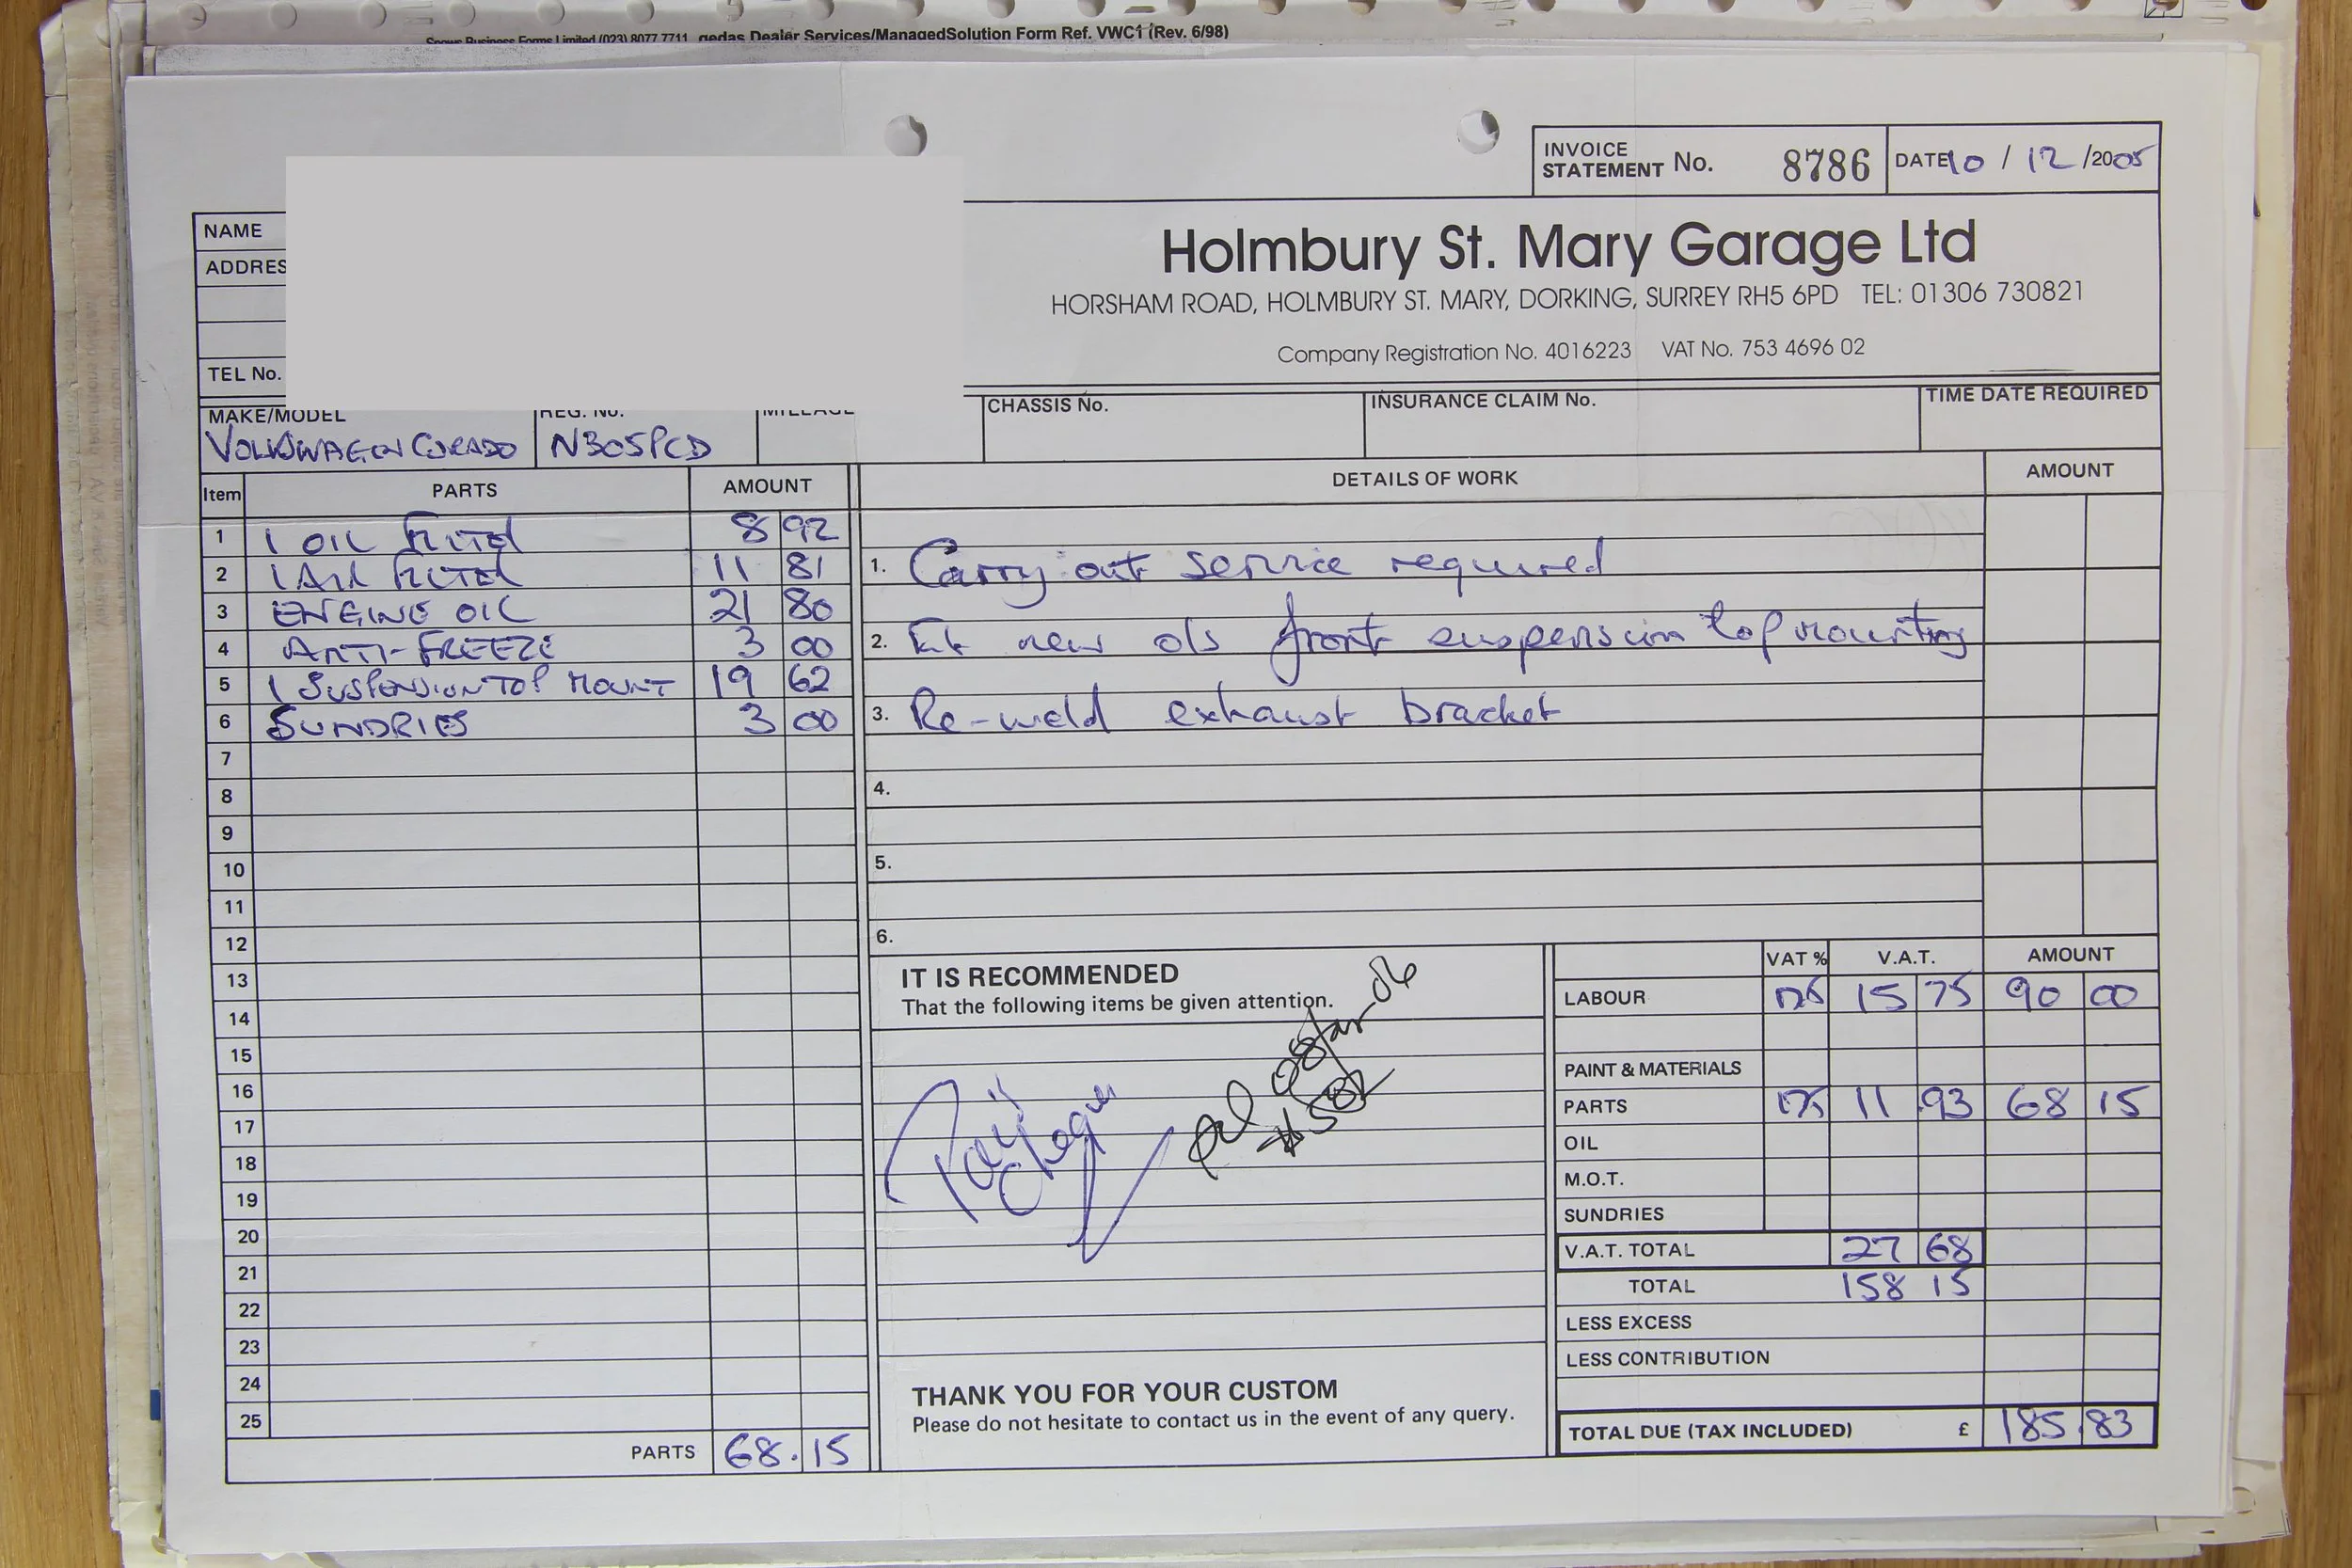 Snows Business Forms Limited (023) 8077 7711 gedas Dealer Services/ManagedSolution Form Ref. VWC1 (Rev. 6/98)
INVOICE STATEMENT No. 8786 DATE 10 / 12 /2005
NAME
ADDRES
TEL No.
Holmbury St. Mary Garage Ltd
HORSHAM ROAD, HOLMBURY ST. MARY, DORKING, SURREY RH5 6PD TEL: 01306 730821
Company Registration No. 4016223 VAT No. 753 4696 02
MAKE/MODEL REG. NO. MILEAGE CHASSIS No. INSURANCE CLAIM No. TIME DATE REQUIRED
VOLKSWAGEN CORADO N305PCD
Item PARTS AMOUNT
1 1 OIL FILTER 8 92
2 1 AIR FILTER 11 81
3 ENGINE OIL 21 80
4 ANTI-FREEZE 3 00
5 1 SUSPENSION TOP MOUNT 19 62
6 SUNDRIES 3 00
7
8
9
10
11
12
13
14
15
16
17
18
19
20
21
22
23
24
25
PARTS 68.15
DETAILS OF WORK AMOUNT
1. Carry out service required
2. Fit new o/s front suspension top mounting
3. Re-weld exhaust bracket
4.
5.
6.
IT IS RECOMMENDED
That the following items be given attention.
Paid
Cheque
pd 08 Jan 06
THANK YOU FOR YOUR CUSTOM
Please do not hesitate to contact us in the event of any query.
VAT % V.A.T. AMOUNT
LABOUR 17.5 15 75 90 00
PAINT & MATERIALS
PARTS 17.5 11.93 68 15
OIL
M.O.T.
SUNDRIES
V.A.T. TOTAL 27 68
TOTAL 158 15
LESS EXCESS
LESS CONTRIBUTION
TOTAL DUE (TAX INCLUDED) £ 185.83